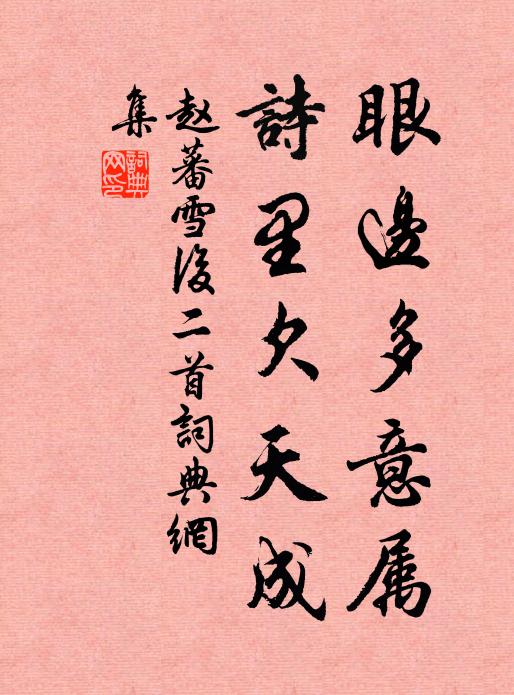 眼邊多意属
詩里欠天成
赵蕃雪後二首詞典網
集
詞典網印